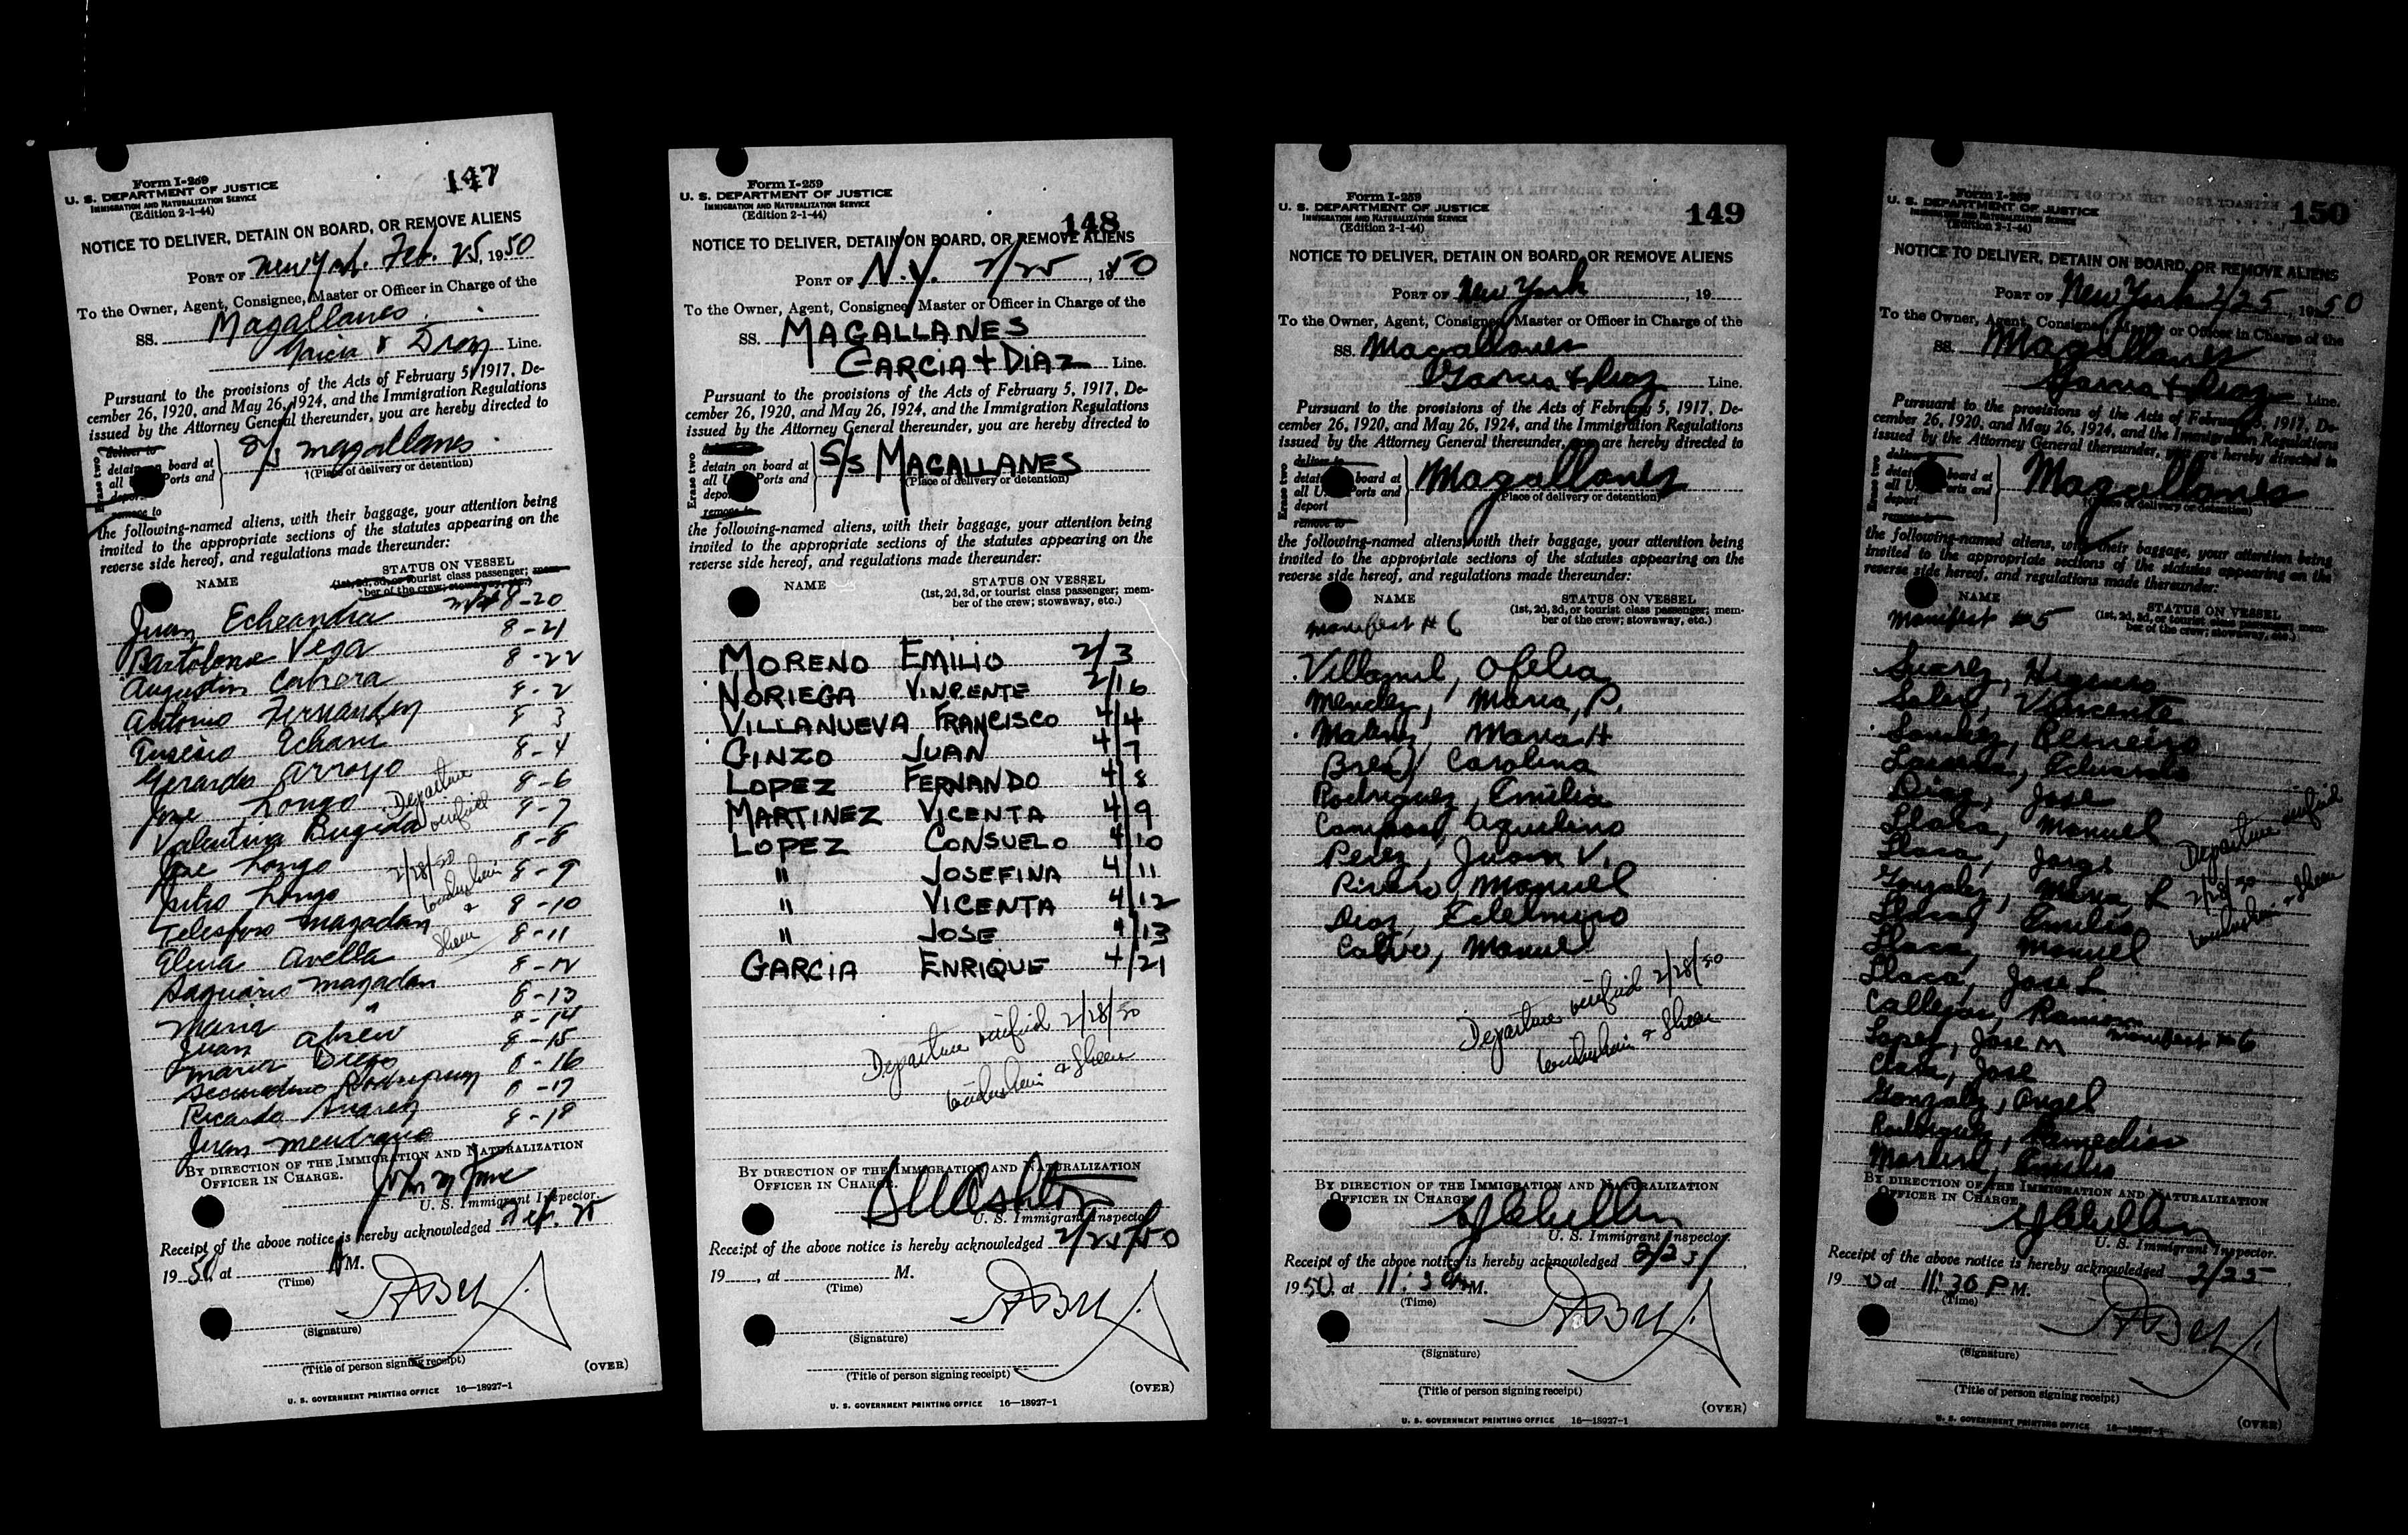 147
Form I-259
U. S. DEPARTMENT OF JUSTICE
IMMIGRATION AND NATURALIZATION SERVICE
(Edition 2-1-44)
NOTICE TO DELIVER, DETAIN ON BOARD, OR REMOVE ALIENS
PORT OF New York, Feb. 25, 1950
To the Owner, Agent, Consignee, Master or Officer in Charge of the
SS. Magallanes
Garcia & Diaz Line.
Pursuant to the provisions of the Acts of February 5, 1917, De-
cember 26, 1920, and May 26, 1924, and the Immigration Regulations
issued by the Attorney General thereunder, you are hereby directed to
Erase two
deliver to
detain on board at
all U. S. Ports and
deport
remove to
S/S Magallanes
†(Place of delivery or detention)
the following-named aliens, with their baggage, your attention being
invited to the appropriate sections of the statutes appearing on the
reverse side hereof, and regulations made thereunder:
NAME STATUS ON VESSEL
(1st, 2d, 3d, or tourist class passenger; mem-
ber of the crew; stowaway, etc.)
Juan Echeandia 8-20
Bartolome Vega 8-21
Augustin Cabrera 8-22
Antonio Fernandez 8-2
Eusebio Echave 8-3
Gerardo Arroyo 8-4
Jose Longo 8-6
Valentina Brigida 8-7
Jose Longo 8-8
Julio Longo 8-9
Telesforo Magadan 8-10
Elena Avella 8-11
Magadan 8-12
Maria " 8-13
Juan Abreu 8-14
Maria Diego 8-15
Secundino Rodriguez 8-16
Ricardo Suarez 8-17
Juan Mendrano 8-18
Departure verified
2/28/50
& Sheen
BY DIRECTION OF THE IMMIGRATION AND NATURALIZATION
OFFICER IN CHARGE.
U. S. Immigrant Inspector.
Receipt of the above notice is hereby acknowledged Feb. 25
1950, at A M.
(Time)
(Signature)
(Title of person signing receipt)
(OVER)
U. S. GOVERNMENT PRINTING OFFICE 16—18927-1
Form I-259
U. S. DEPARTMENT OF JUSTICE
IMMIGRATION AND NATURALIZATION SERVICE
(Edition 2-1-44)
148
NOTICE TO DELIVER, DETAIN ON BOARD, OR REMOVE ALIENS
PORT OF N.Y. 2/25, 1950
To the Owner, Agent, Consignee, Master or Officer in Charge of the
SS. MAGALLANES
GARCIA + DIAZ Line.
Pursuant to the provisions of the Acts of February 5, 1917, De-
cember 26, 1920, and May 26, 1924, and the Immigration Regulations
issued by the Attorney General thereunder, you are hereby directed to
Erase two
detain on board at
all U. S. Ports and
deport
remove to
S/S MAGALLANES
(Place of delivery or detention)
the following-named aliens, with their baggage, your attention being
invited to the appropriate sections of the statutes appearing on the
reverse side hereof, and regulations made thereunder:
NAME STATUS ON VESSEL
(1st, 2d, 3d, or tourist class passenger; mem-
ber of the crew; stowaway, etc.)
MORENO EMILIO 2/3
NORIEGA VINCENTE 2/16
VILLANUEVA FRANCISCO 4/4
GINZO JUAN 4/7
LOPEZ FERNANDO 4/8
MARTINEZ VICENTA 4/9
LOPEZ CONSUELO 4/10
" JOSEFINA 4/11
" VICENTA 4/12
" JOSE 4/13
GARCIA ENRIQUE 4/21
Departure verified 2/28/50
& Sheen
BY DIRECTION OF THE IMMIGRATION AND NATURALIZATION
OFFICER IN CHARGE.
U. S. Immigrant Inspector
Receipt of the above notice is hereby acknowledged 2/25/50
19 , at M.
(Time)
(Signature)
(Title of person signing receipt)
(OVER)
U. S. GOVERNMENT PRINTING OFFICE 16—18927-1
Form I-259
U. S. DEPARTMENT OF JUSTICE
IMMIGRATION AND NATURALIZATION SERVICE
(Edition 2-1-44)
149
NOTICE TO DELIVER, DETAIN ON BOARD, OR REMOVE ALIENS
PORT OF New York, 19
To the Owner, Agent, Consignee, Master or Officer in Charge of the
SS. Magallanes
Garcia & Diaz Line.
Pursuant to the provisions of the Acts of February 5, 1917, De-
cember 26, 1920, and May 26, 1924, and the Immigration Regulations
issued by the Attorney General thereunder, you are hereby directed to
Erase two
deliver to
detain on board at
all U. S. Ports and
deport
remove to
Magallanes
(Place of delivery or detention)
the following-named aliens, with their baggage, your attention being
invited to the appropriate sections of the statutes appearing on the
reverse side hereof, and regulations made thereunder:
NAME STATUS ON VESSEL
(1st, 2d, 3d, or tourist class passenger; mem-
ber of the crew; stowaway, etc.)
Manifest # 6
Villamil, Ofelia
Mendez, Maria, P.
Maria H
Brea, Carolina
Rodriguez, Emilia
Campos, Aquilino
Perez, Juan V.
Rivero, Manuel
Diaz, Edelmiro
Calvo, Manuel
Departure verified 2/28/50
& Sheen
BY DIRECTION OF THE IMMIGRATION AND NATURALIZATION
OFFICER IN CHARGE
U. S. Immigrant Inspector.
Receipt of the above notice is hereby acknowledged
1950, at 11:30 M.
(Time)
(Signature)
(Title of person signing receipt)
(OVER)
U. S. GOVERNMENT PRINTING OFFICE 16—18927-1
Form I-259
U. S. DEPARTMENT OF JUSTICE
IMMIGRATION AND NATURALIZATION SERVICE
(Edition 2-1-44)
150
NOTICE TO DELIVER, DETAIN ON BOARD, OR REMOVE ALIENS
PORT OF New York 2/25, 1950
To the Owner, Agent, Consignee, Master or Officer in Charge of the
SS. Magallanes
Garcia & Diaz Line.
Pursuant to the provisions of the Acts of February 5, 1917, De-
cember 26, 1920, and May 26, 1924, and the Immigration Regulations
issued by the Attorney General thereunder, you are hereby directed to
Erase two
deliver to
detain on board at
all U. S. Ports and
deport
remove to
Magallanes
(Place of delivery or detention)
the following-named aliens, with their baggage, your attention being
invited to the appropriate sections of the statutes appearing on the
reverse side hereof, and regulations made thereunder:
NAME STATUS ON VESSEL
(1st, 2d, 3d, or tourist class passenger; mem-
ber of the crew; stowaway, etc.)
Manifest #5
Suarez, Higinio
Vincente
Sanchez,
Eduardo
Diaz, Jose
Llaca, Manuel
Llaca, Jorge
Gonzalez, Maria, L
Llaca, Emilia
Llaca, Manuel
Llaca, Jose L.
Callejas, Ramon
Lopez, Jose M Manifest #6
Jose
Gonzalez, Angel
Rodriguez, Remedios
Emilio
Departure verified
2/28/50
& Sheen
BY DIRECTION OF THE IMMIGRATION AND NATURALIZATION
OFFICER IN CHARGE
U. S. Immigrant Inspector.
Receipt of the above notice is hereby acknowledged 2/25
19 0 at 11:30 P M.
(Time)
(Signature)
(Title of person signing receipt)
(OVER)
U. S. GOVERNMENT PRINTING OFFICE 16—18927-1